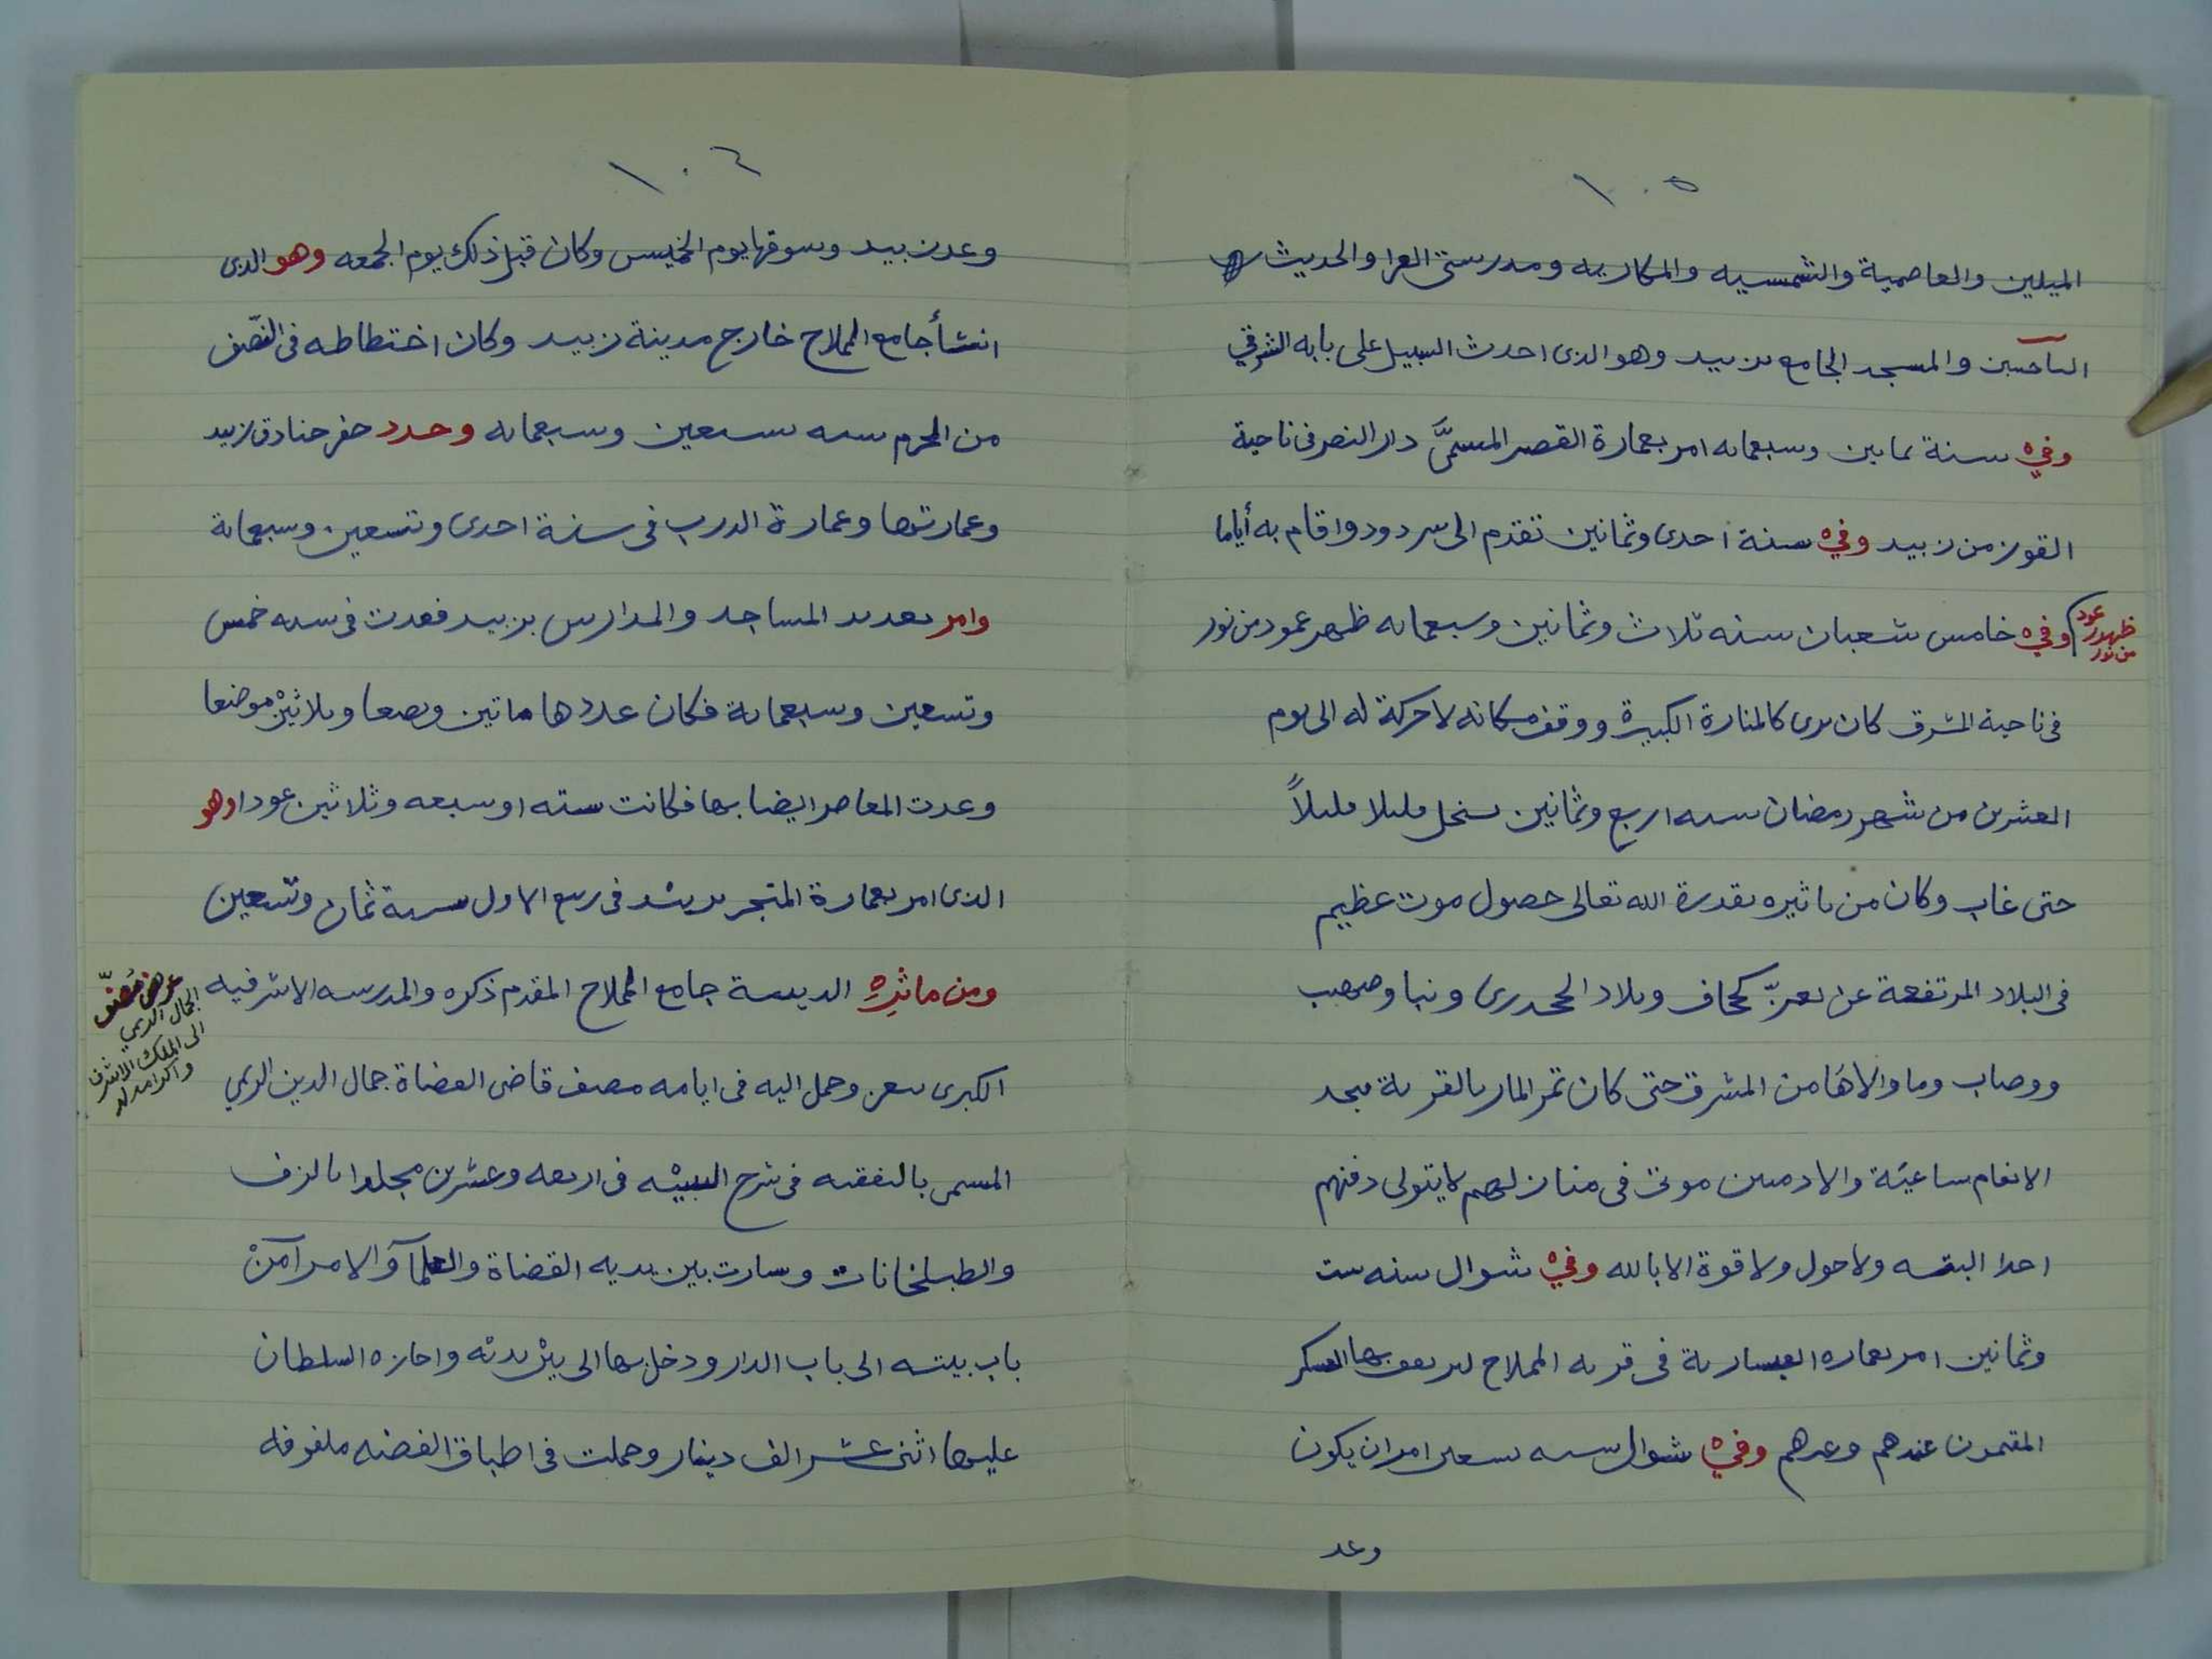 ١٠٥
الميلين والعاصمية والشمسيه والمكاريه ومدرستى القرا والحديث
والمسجد الجامع بزبيد وهو الذى احدث السبيل على بابه الشرقي
وفيه سنة ثمانين وسبعمايه امر بعمارة القصر المسمىَّ دار النصر فى ناحية
القوز من زبيد وفيه سنة احدى وثمانين تقدم الى سردود واقام به أياما
ظهور عمود من نور
وفيه خامس شعبان سنه ثلاث وثمانين وسبعمايه ظهر عمود من نور
فى ناحية المشرق كان يرى كالمنارة الكبيرة ووقف مكانه لا حركة له الى يوم
العشرين من شهر رمضان سنه اربع وثمانين قليلا قليلاً
حتى غاب وكان من تاثيره بقدرة الله تعالى حصول موت عظيم
فى البلاد المرتفعة عن تعزّ كحاف وبلاد وصهيب
ووصاب وما والاها من المشرق حتى كان تمر المار بالقرية فيجد
الانعام ساعية والادميين موتى فى منازلهم لا يتولى دفنهم
احدا البته ولا حول ولا قوة الا بالله وفيه شوال سنه ست
وثمانين امر بعماره القيسارية فى قريه المملاح بها العسكر
المقيمون عندهم وغيرهم وفيه شوال سنه تسعين امر ان يكون
وعد
١٠٦
وعد زبيد وسوقها يوم الخميس وكان قبل ذلك يوم الجمعه وهو الذى
انشأ جامع المملاح خارج مدينة زبيد وكان اختطاطه فى النّصف
من المحرم سنه تسعين وسبعمايه وجدد حفر خنادق زبيد
وعمارتها وعمارة الدرب فى سنة احدى وتسعين وسبعماية
وامر بعدد المساجد والمدارس بزبيد فعدت فى سنه خمس
وتسعين وسبعماية فكان عددها ماتين وبضعا وثلاثين موضعا
وعدت المعاصر ايضا بها فكانت سته او سبعه وثلاثين عودا وهو
الذى امر بعمارة المتجر فى ربيع الاول سنة ثمان وتسعين
ومن ماثره الدينية جامع المملاح المقدم ذكره والمدرسه الاشرفيه
عرض مصنّف الجمال الريمي
الى الملك الاشرف
واكرامه له
الكبرى بتعز وحمل اليه فى ايامه مصنف قاضى القضاة جمال الدين الريمي
المسمى بالتفقيه فى شرح التنبيه فى اربعه وعشرين مجلدا بالزف
والطبلخانات وسارت بين يديه القضاة والعلمآ والامرآ من
باب بيته الى باب الدار ودخل بها الى بين يديه واجازه السلطان
عليها اثنى عشر الف دينار وحملت فى اطباق الفضه ملفوفه